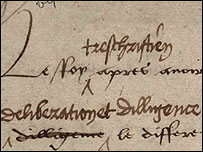 treschristien
Le Roy apres avoir
deliberation et dilligence
dilligence le differe